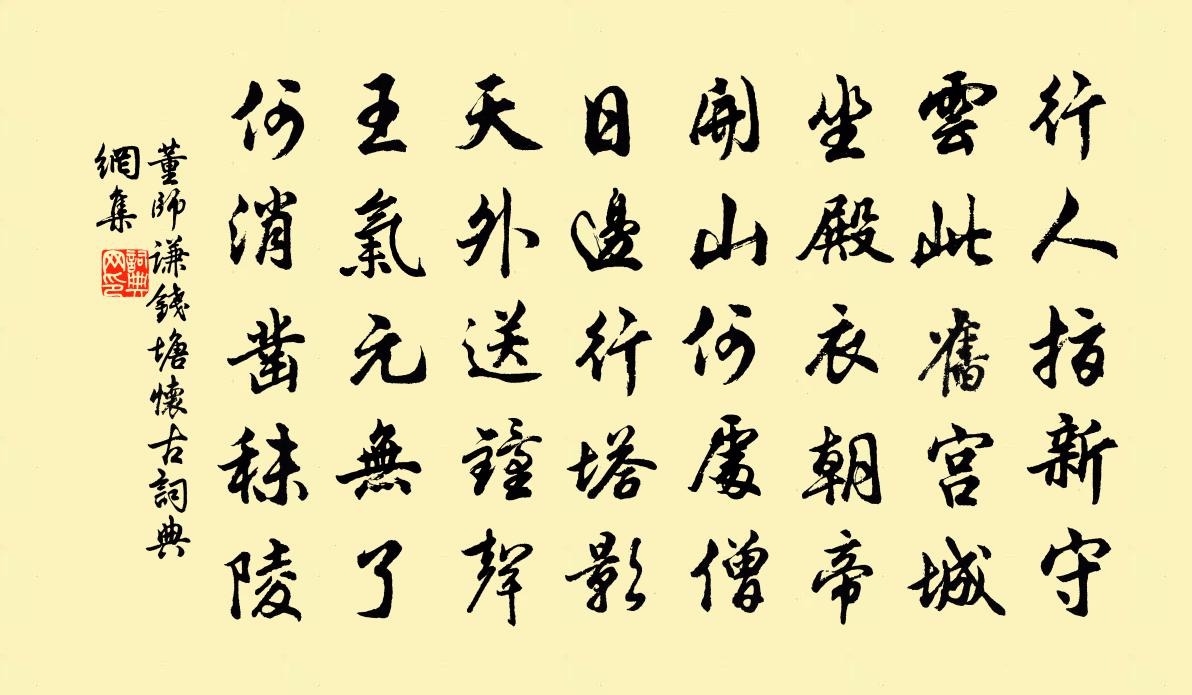 行人指新守
雲此舊宫城
坐殿衣朝帝
開山何處僧
日邊行塔影
天外送鐘聲
王氣元無了
何消凿秣陵
董師谦錢塘懷古詞典
網集
詞典網印